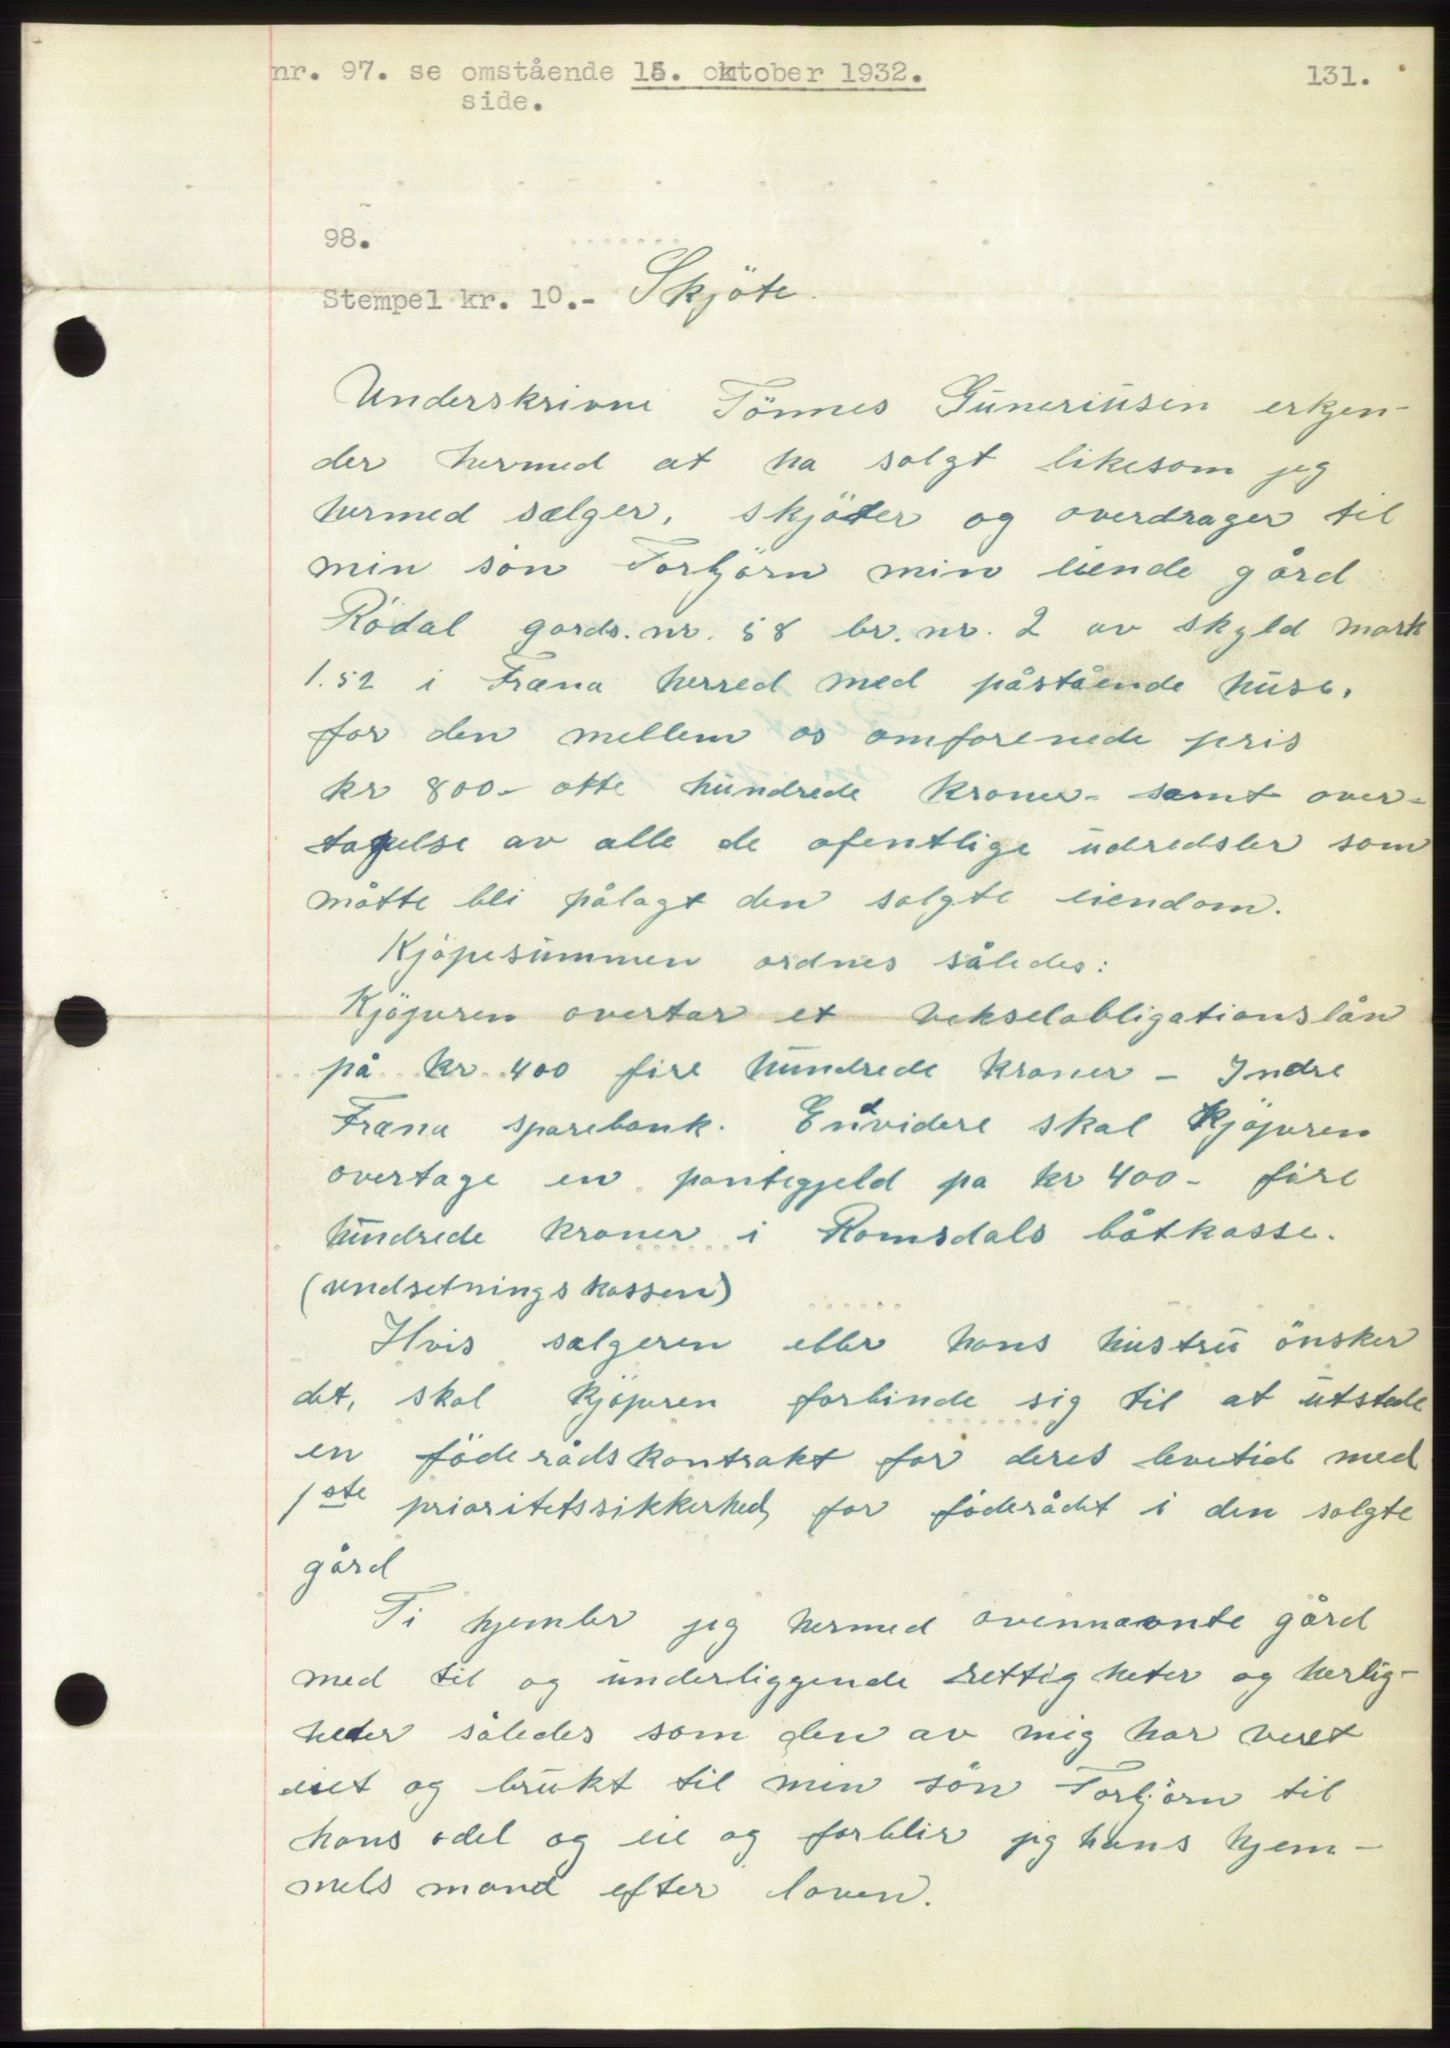 nr. 97. se omstående 15. oktober 1932. 131.
side.
98.
Stempel kr. 10.- Skjöte.
Underskrivne Tönnes Guneriusen erkjen-
der hermed at ha solgt likesom jeg
hermed sælger, skjöter og overdrager til
min sön Torbjörn min eiende gård
Rödal gards. nr. 58 br. nr. 2 av skyld mark
1.52 i Fræna herred med påstående huse,
for den mellem os omforenede pris
kr 800- otte hundrede kroner- samt over-
tagelse av alle de ofentlige udredsler som
måtte bli pålagt den solgte eiendom.
Kjöpesummen ordnes således:
Kjöperen overtar et vekselobligationslån
på kr. 400 fire hundrede kroner - Indre
Fræna sparebank. Endvidere skal Kjöperen
overtage en pantegjeld pa kr 400- fire
hundrede kroner i Romsdals båtkasse.
(undsetningskassen)
Hvis sælgeren eller hans hustru önsker
det, skal kjöperen forbinde sig til at utstede
en föderådskontrakt for deres levetid med
1ste prioritetssikkerhed for föderådet i den solgte
gård
Ti hjemler jeg hermed ovennævnte gård
med til og underliggende rettigheter og herlig-
heter således som den av mig har veret
eiet og brukt til min sön Torbjörn til
hans odel og eie og forblir jeg hans hjem-
mels mand efter loven.